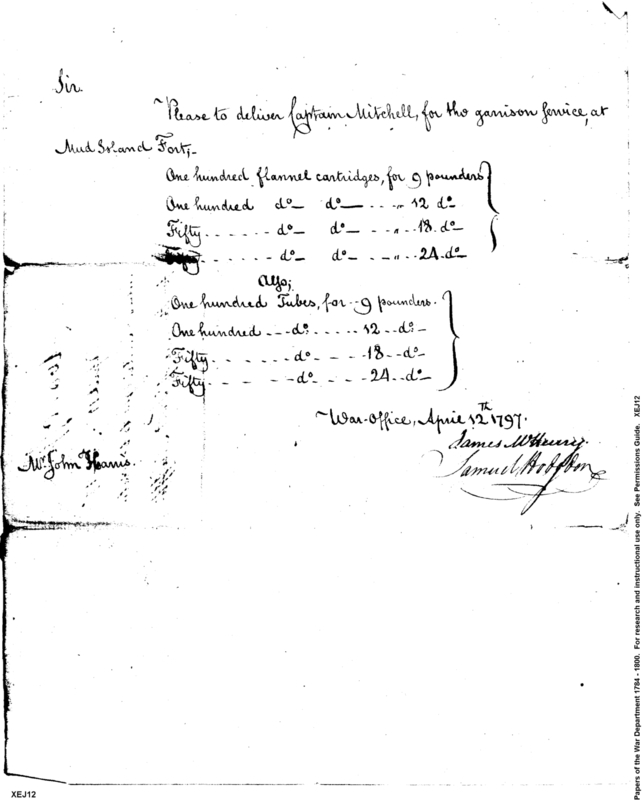 Sir.
Please to deliver Captain Mitchell, for the garrison service, at
Mud Island Fort,-
One hundred flannel cartridges, for 9 pounders
One hundred do— do— - - „ 12 do—
Fifty - - - - - - do— do— - - „ - 18 - do—
Fifty - - - - - - do— do— - - „ - 24 - do—
Also;
One hundred Tubes, for - 9 pounders.
One hundred - - - do - - - - - 12 - - do—
Fifty - - - - - - do - - - - - 18 - - do—
Fifty - - - - - - do - - - - - 24 - - do—
War-Office, April 12th 1797.
James McHenry.
Samuel Hodgdon
Mr. John Harris.
XEJ12
Papers of the War Department 1784 - 1800. For research and instructional use only. See Permissions Guide. XEJ12